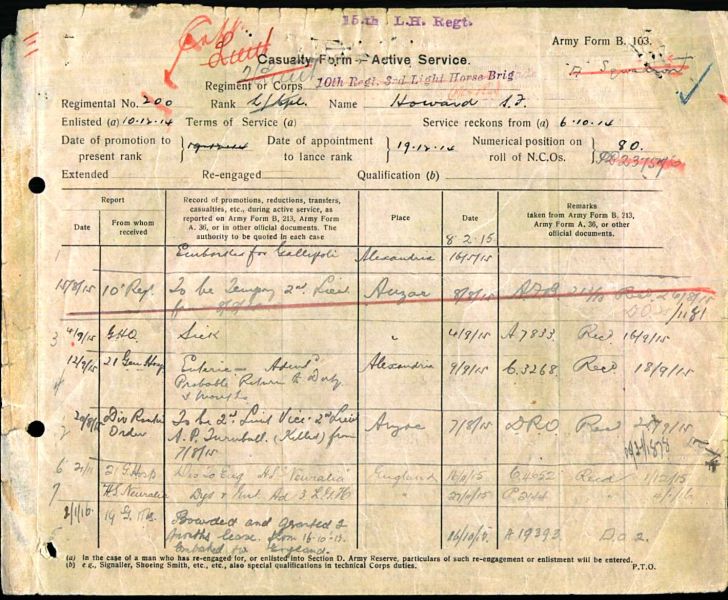 15th L.H. Regt.
Army Form B. 103.
Lieut
Casualty Form—Active Service.
2/Lieut
"A" Squadron
Regiment or Corps 10th Regt. 3rd Light Horse Brigade
Regimental No. 200 Rank L/Cpl. Name Howard S.F.
Enlisted (a) 10-12-14 Terms of Service (a) Service reckons from (a) 6-10-14
Date of promotion to present rank } 19-12-14 Date of appointment to lance rank } 19-12-14 Numerical position on roll of N.C.Os. } 80.
Extended Re-engaged Qualification (b)
Report
Date
From whom received
Record of promotions, reductions, transfers, casualties, etc., during active service, as reported on Army Form B. 213, Army Form A. 36, or in other official documents. The authority to be quoted in each case
Place
Date
Remarks taken from Army Form B. 213, Army Form A. 36, or other official documents.
8.2.15
1 Embarked for Gallipoli Alexandria 16/5/15
15/8/15 10th Regt To be Tempy 2nd Lieut Anzac 8/8/15
3 4/9/15 GHQ Sick " 4/9/15 A7833 Recd 16/9/15
4 12/9/15 21 Gen Hosp Enteric — Alexandria 9/9/15 C.3268 Recd 18/9/15
Probable Return to Duty
months
2 20/8/15 Div Routine Order To be 2nd Lieut Vice 2nd Lieut Anzac 7/8/15 DRO Recd
A.P. Turnbull (Killed) from
7/8/15
6 21/11 21 G Hosp Dis to Eng HS "Neuralia" England C.4652 Recd 1/12/15
7 H.S. Neuralia Dys & Ent Ad 3 LGH "
2/1/16 Boarded and granted 2 16/10/15 A 19393 D.O.2.
months leave from 16-10-15.
Embarked for England.
(a) In the case of a man who has re-engaged for, or enlisted into Section D. Army Reserve, particulars of such re-engagement or enlistment will be entered.
(b) e.g., Signaller, Shoeing Smith, etc., etc., also special qualifications in technical Corps duties.
P.T.O.